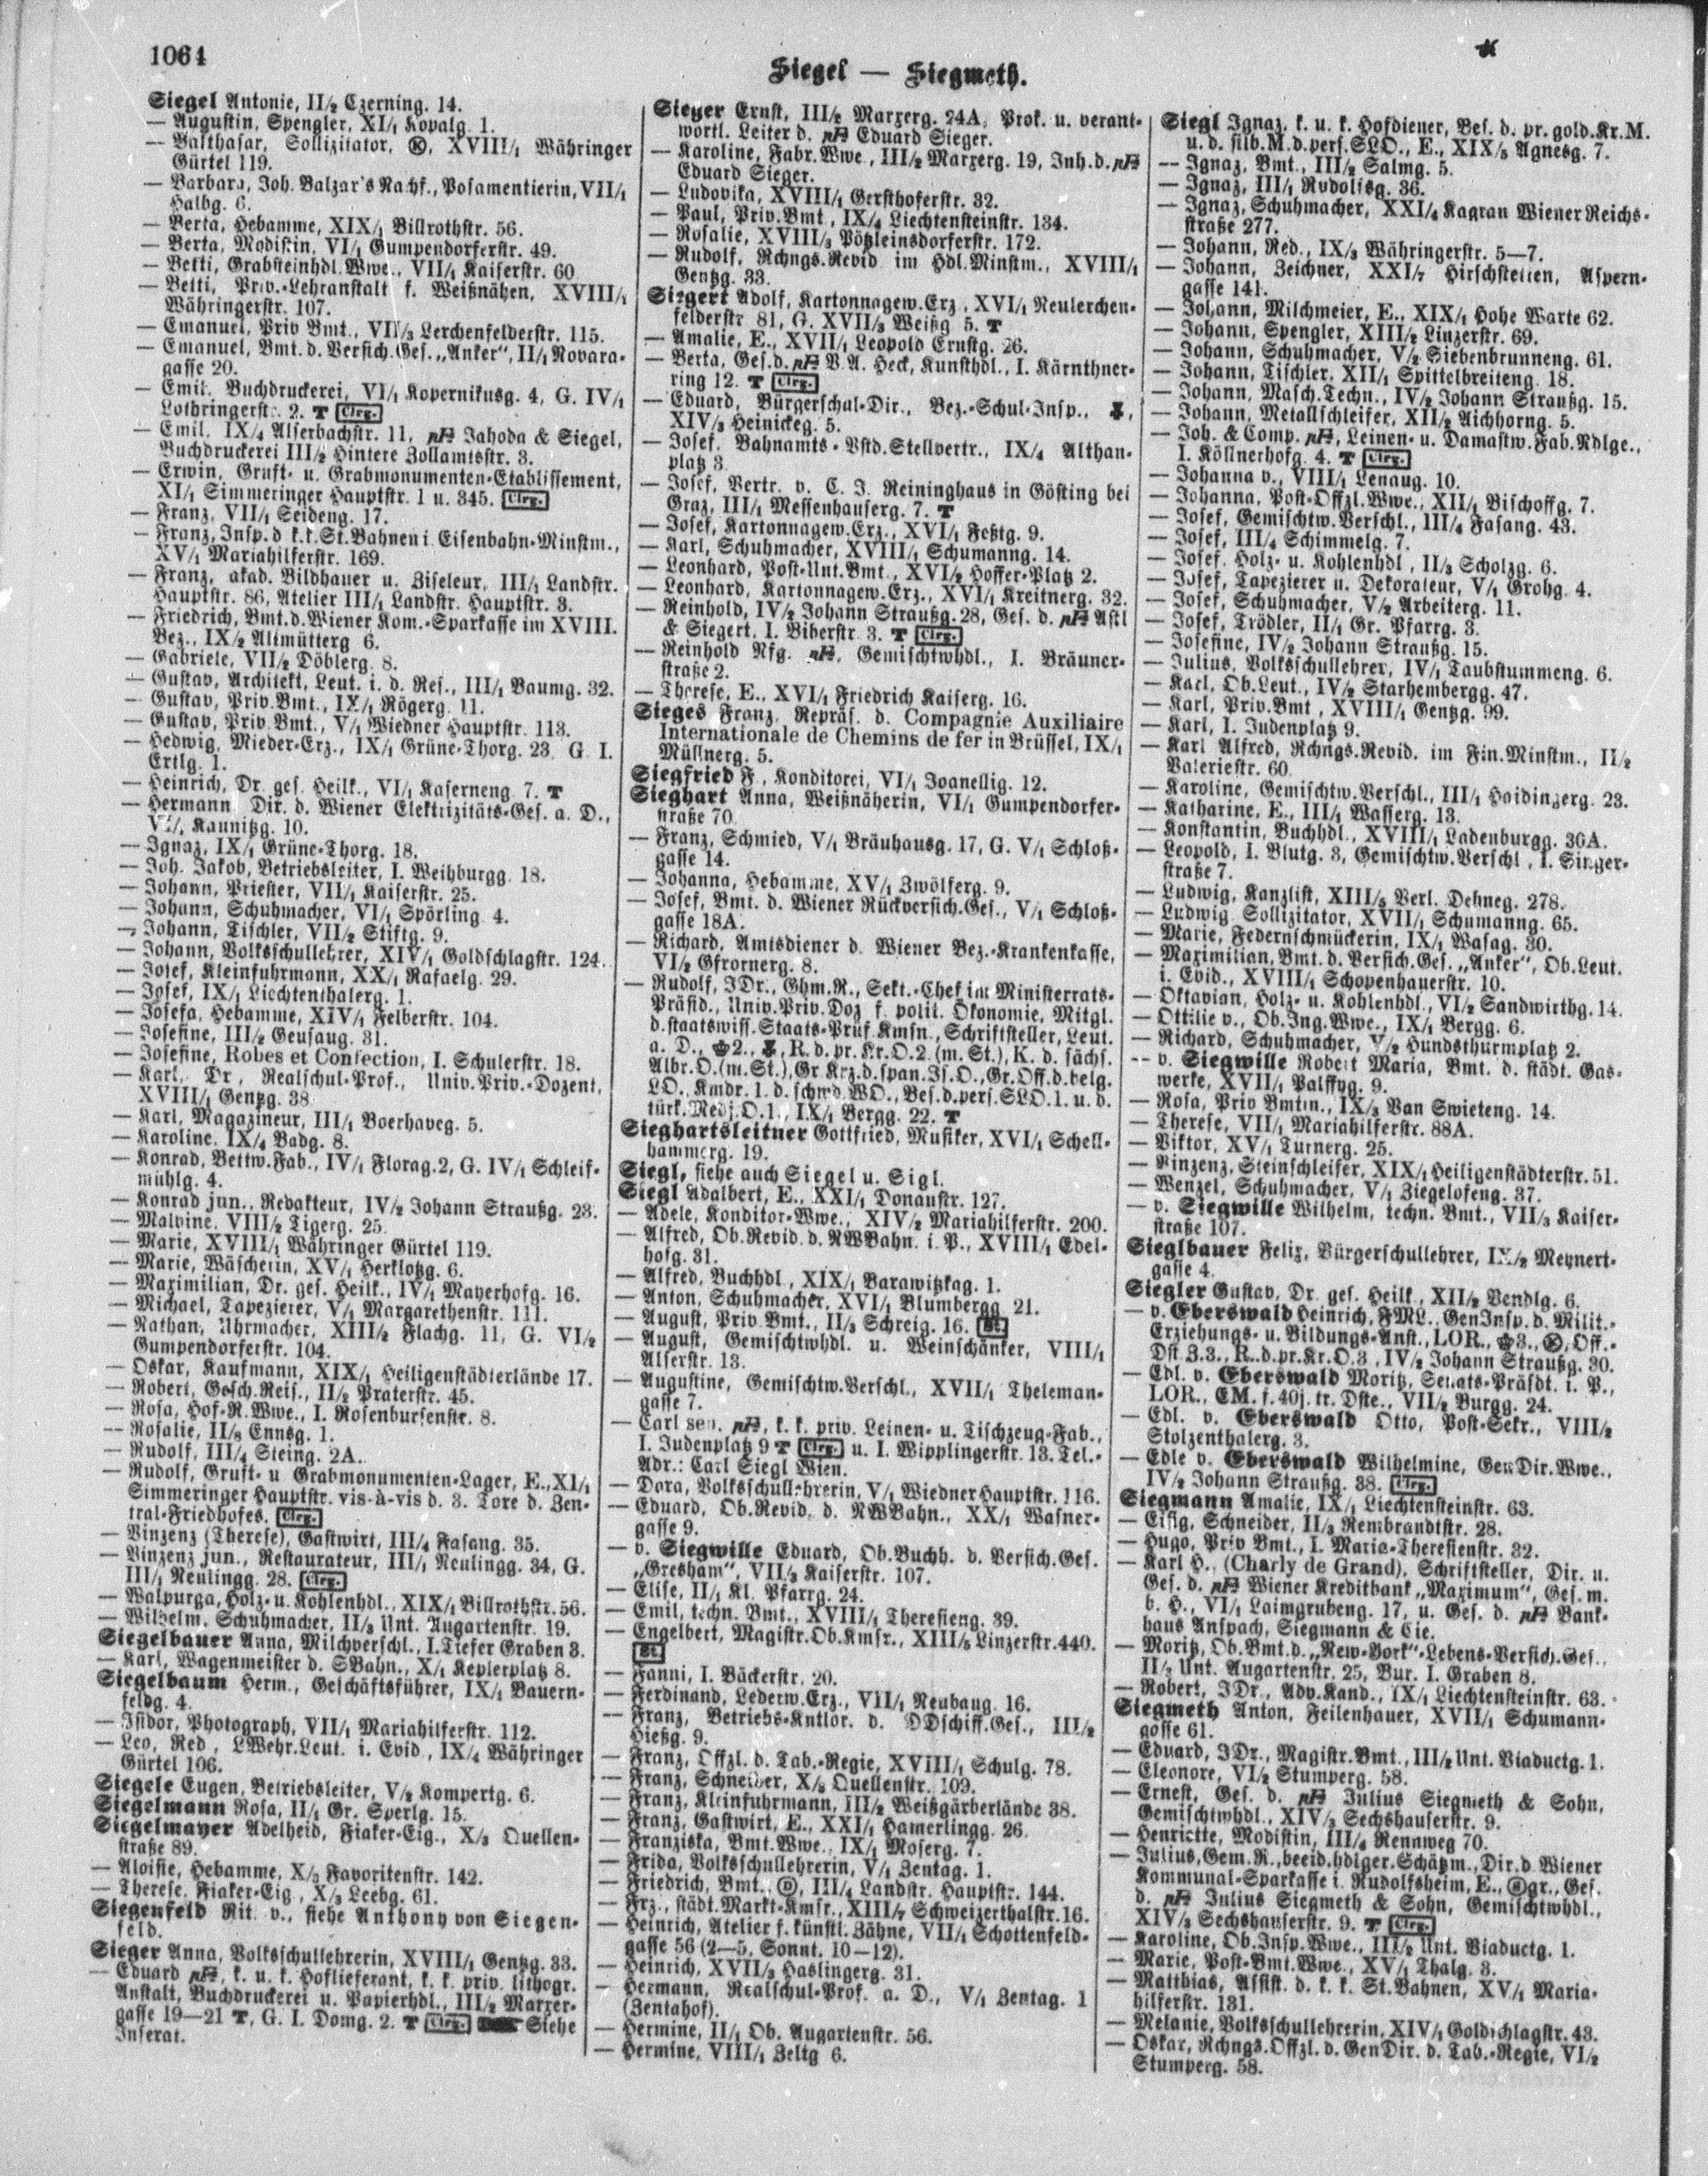 1064
Siegel — Siegmeth.
Siegel Antonie, II/2 Czerning. 14.
— Augustin, Spengler, XI/1 Kopalg. 1.
— Balthasar, Sollizitator, Ⓚ, XVIII/1 Währinger
Gürtel 119.
— Barbara, Joh. Balzar's Nachf., Posamentierin, VII/1
Halbg. 6.
— Berta, Hebamme, XIX/1 Billrothstr. 56.
— Berta, Modistin, VI/1 Gumpendorferstr. 49.
— Betti, Grabsteinhdl.Wwe., VII/1 Kaiserstr. 60
— Betti, Priv.-Lehranstalt f. Weißnähen, XVIII/1
Währingerstr. 107.
— Emanuel, Priv Bmt., VII/3 Lerchenfelderstr. 115.
— Emanuel, Bmt. d. Versich.Ges. „Anker", II/1 Novara-
gasse 20.
— Emil, Buchdruckerei, VI/1 Kopernikusg. 4, G. IV/1
Lothringerstr. 2. T Clrg.
— Emil, IX/4 Alserbachstr. 11, Jahoda & Siegel,
Buchdruckerei III/2 Hintere Zollamtsstr. 3.
— Erwin, Gruft- u. Grabmonumenten-Etablissement,
XI/1 Simmeringer Hauptstr. 1 u. 345. Clrg.
— Franz, VII/1 Seideng. 17.
— Franz, Insp. d k.k.St.Bahnen i Eisenbahn-Minstm.,
XV/1 Mariahilferstr. 169.
— Franz, akad. Bildhauer u. Ziseleur, III/1 Landstr.
Hauptstr. 86, Atelier III/1 Landstr. Hauptstr. 3.
— Friedrich, Bmt.d.Wiener Kom.-Sparkasse im XVIII.
Bez., IX/2 Altmütterg 6.
— Gabriele, VII/2 Döblerg. 8.
— Gustav, Architekt, Leut. i. d. Res., III/1 Baumg. 32.
— Gustav, Priv.Bmt., IX/1 Rögerg. 11.
— Gustav, Priv.Bmt., V/1 Wiedner Hauptstr. 113.
— Hedwig, Mieder-Erz., IX/1 Grüne-Thorg. 23, G. I.
Ertlg. 1.
— Heinrich, Dr. ges. Heilk., VI/1 Kaserneng. 7. T
— Hermann, Dir. d. Wiener Elektrizitäts-Ges. a. D.,
Kaunitzg. 10.
— Ignaz, IX/1 Grüne-Thorg. 18.
— Joh. Jakob, Betriebsleiter, I. Weihburgg. 18.
— Johann, Priester, VII/1 Kaiserstr. 25.
— Johann, Schuhmacher, VI/1 Spörling. 4.
— Johann, Tischler, VII/2 Stiftg. 9.
— Johann, Volksschullehrer, XIV/1 Goldschlagstr. 124.
— Josef, Kleinfuhrmann, XX/1 Rafaelg. 29.
— Josef, IX/1 Liechtenthalerg. 1.
— Josefa, Hebamme, XIV/1 Felberstr. 104.
— Josefine, III/2 Geusaug. 31.
— Josefine, Robes et Confection, I. Schulerstr. 18.
— Karl, Dr, Realschul-Prof., Univ.Priv.-Dozent,
XVIII/1 Gentzg. 38
— Karl, Magazineur, III/1 Boerhaveg. 5.
— Karoline, IX/4 Badg. 8.
— Konrad, Bettw.Fab., IV/1 Florag.2, G. IV/1 Schleif-
mühlg. 4.
— Konrad jun., Redakteur, IV/2 Johann Straußg. 23.
— Malvine, VIII/2 Tigerg. 25.
— Marie, XVIII/1 Währinger Gürtel 119.
— Marie, Wäscherin, XV/1 Herklotzg. 6.
— Maximilian, Dr. ges. Heilk., IV/1 Mayerhofg. 16.
— Michael, Tapezierer, V/1 Margarethenstr. 111.
— Nathan, Uhrmacher, XIII/2 Flachg. 11, G. VI/2
Gumpendorferstr. 104.
— Oskar, Kaufmann, XIX/1 Heiligenstädterlände 17.
— Robert, Gesch.Reis., II/2 Praterstr. 45.
— Rosa, Hof-R.Wwe., I. Rosenbursenstr. 8.
— Rosalie, II/8 Ennsg. 1.
— Rudolf, III/4 Steing. 2A.
— Rudolf, Gruft- u Grabmonumenten-Lager, E., XI/1
Simmeringer Hauptstr. vis-à-vis d. 3. Tore d. Zen-
tral-Friedhofes. Clrg.
— Vinzenz (Therese), Gastwirt, III/4 Fasang. 35.
— Vinzenz jun., Restaurateur, III/1 Neulingg. 34, G.
III/1 Neulingg. 28. Clrg.
— Walpurga, Holz- u. Kohlenhdl., XIX/1 Billrothstr. 56.
— Wilhelm, Schuhmacher, II/3 Unt. Augartenstr. 19.
Siegelbauer Anna, Milchverschl., I. Tiefer Graben 3.
— Karl, Wagenmeister d. SBahn., X/1 Keplerplatz 8.
Siegelbaum Herm., Geschäftsführer, IX/1 Bauern-
feldg. 4.
— Isidor, Photograph, VII/1 Mariahilferstr. 112.
— Leo, Red, LWehr.Leut. i. Evid, IX/4 Währinger
Gürtel 106.
Siegele Eugen, Betriebsleiter, V/2 Kompertg. 6.
Siegelmann Rosa, II/1 Gr. Sperlg. 15.
Siegelmayer Adelheid, Fiaker-Eig., X/3 Quellen-
straße 89.
— Aloisie, Hebamme, X/3 Favoritenstr. 142.
— Therese, Fiaker-Eig, X/3 Leebg. 61.
Siegenfeld Rit. v., siehe Anthony von Siegen-
feld.
Sieger Anna, Volksschullehrerin, XVIII/1 Gentzg. 33.
— Eduard, k. u. k. Hoflieferant, k. k. priv. lithogr.
Anstalt, Buchdruckerei u. Papierhdl., III/2 Marxer-
gasse 19—21 T, G. I. Domg. 2. T Clrg. Siehe
Inserat.
Sieger Ernst, III/2 Marxerg. 24A, Prok. u. verant-
wortl. Leiter d. Eduard Sieger.
— Karoline, Fabr.Wwe., III/2 Marxerg. 19, Inh. d.
Eduard Sieger.
— Ludovika, XVIII/1 Gersthoferstr. 32.
— Paul, Priv.Bmt, IX/4 Liechtensteinstr. 134.
— Rosalie, XVIII/3 Pötzleinsdorferstr. 172.
— Rudolf, Rchngs.Revid im Hdl.Minstm., XVIII/1
Gentzg. 33.
Siegert Adolf, Kartonnagew.Erz, XVI/1 Neulerchen-
felderstr 81, G. XVII/3 Weißg 5. T
— Amalie, E., XVII/1 Leopold Ernstg. 26.
— Berta, Ges.d. V. A. Heck, Kunsthdl., I. Kärnthner-
ring 12. T Clrg.
— Eduard, Bürgerschul-Dir., Bez.-Schul-Insp.,
XIV/3 Heinickeg. 5.
— Josef, Bahnamts-Vstd.Stellvertr., IX/4 Althan-
platz 3.
— Josef, Vertr. v. C. J. Reininghaus in Gösting bei
Graz, III/1 Messenhauserg. 7. T
— Josef, Kartonnagew.Erz., XVI/1 Feßtg. 9.
— Karl, Schuhmacher, XVIII/1 Schumanng. 14.
— Leonhard, Post-Unt.Bmt., XVI/2 Hoffer-Platz 2.
— Leonhard, Kartonnagew.Erz., XVI/1 Kreitnerg. 32.
— Reinhold, IV/2 Johann Straußg. 28, Ges. d. Astl
& Siegert, I. Biberstr. 3. T Clrg.
— Reinhold Nfg., Gemischtwhdl., I. Bräuner-
straße 2.
— Therese, E., XVI/1 Friedrich Kaiserg. 16.
Sieges Franz, Repräs. d. Compagnie Auxiliaire
Internationale de Chemins de fer in Brüssel, IX/1
Müllnerg. 5.
Siegfried F, Konditorei, VI/1 Joanellig. 12.
Sieghart Anna, Weißnäherin, VI/1 Gumpendorfer-
straße 70
— Franz, Schmied, V/1 Bräuhausg. 17, G. V/1 Schloß-
gasse 14.
— Johanna, Hebamme, XV/1 Zwölferg. 9.
— Josef, Bmt. d. Wiener Rückversich.Ges., V/1 Schloß-
gasse 18A.
— Richard, Amtsdiener d. Wiener Bez.-Krankenkasse,
VI/2 Gfrornerg. 8.
— Rudolf, JDr., Ghm.R., Sekt.-Chef im Ministerrats-
Präsid., Univ.Priv.Doz f. polit. Ökonomie, Mitgl.
d. staatswiss. Staats-Prüf.Kmsn., Schriftsteller, Leut.
a. D., 2., R. d. pr. Kr.O.2.(m. St.), K. d. sächs.
Albr.O.(m.St.),Gr.Krz.d.span.Is.O.,Gr.Off.d.belg.
LO., Kmdr. 1. d. schwd.WO., Bes.d.pers.SLO.1. u. d.
türk.Medj.O.1., IX/1 Bergg. 22. T
Sieghartsleitner Gottfried, Musiker, XVI/1 Schell-
hammerg. 19.
Siegl, siehe auch Siegel u. Sigl.
Siegl Adalbert, E., XXI/1 Donaustr. 127.
— Adele, Konditor-Wwe., XIV/2 Mariahilferstr. 200.
— Alfred, Ob.Revid. d. NWBahn. i. P., XVIII/1 Edel-
hofg. 31.
— Alfred, Buchhdl., XIX/1 Barawitzkag. 1.
— Anton, Schuhmacher, XVI/1 Blumbergg. 21.
— August, Priv Bmt., II/3 Schreig. 16. Bt.
— August, Gemischtwhdl. u. Weinschänker, VIII/1
Alserstr. 13.
— Augustine, Gemischtw.Verschl., XVII/1 Theleman-
gasse 7.
— Carl sen., k. k. priv. Leinen- u. Tischzeug-Fab.,
I. Judenplatz 9 T Clrg. u. I. Wipplingerstr. 13. Tel.-
Adr.: Carl Siegl Wien.
— Dora, Volksschullehrerin, V/1 Wiedner Hauptstr. 116.
— Eduard, Ob.Revid. d. NWBahn., XX/1 Wasner-
gasse 9.
— v. Siegwille Eduard, Ob.Buchh. d. Versich.Ges.
„Gresham", VII/3 Kaiserstr. 107.
— Elise, II/1 Kl. Pfarrg. 24.
— Emil, techn. Bmt., XVIII/1 Theresieng. 39.
— Engelbert, Magistr.Ob.Kmsr., XIII/5 Linzerstr. 440.
Bt.
— Fanni, I. Bäckerstr. 20.
— Ferdinand, Lederw.Erz., VII/1 Neubaug. 16.
— Franz, Betriebs-Kntlor. d. DDschiff.Ges., III/2
Hießg. 9.
— Franz, Offzl. d. Tab.-Regie, XVIII/1 Schulg. 78.
— Franz, Schneider, X/3 Quellenstr. 109.
— Franz, Kleinfuhrmann, III/2 Weißgärberlände 38.
— Franz, Gastwirt, E., XXI/1 Hamerlingg. 26.
— Franziska, Bmt.Wwe., IX/1 Moserg. 7.
— Frida, Volksschullehrerin, V/1 Zentag. 1.
— Friedrich, Bmt., Ⓓ, III/4 Landstr. Hauptstr. 144.
— Frz., städt.Markt-Kmsr., XIII/7 Schweizerthalstr. 16.
— Heinrich, Atelier f. künstl. Zähne, VII/1 Schottenfeld-
gasse 56 (2—5, Sonnt. 10—12).
— Heinrich, XVII/3 Haslingerg. 31.
— Hermann, Realschul-Prof. a. D., V/1 Zentag. 1
(Zentahof).
— Hermine, II/1 Ob. Augartenstr. 56.
— Hermine, VIII/1 Zeltg 6.
Siegl Ignaz, k. u. k. Hofdiener, Bes. d. pr. gold.Kr.M.
u. d. silb.M.d.pers.SLO., E., XIX/5 Agnesg. 7.
— Ignaz, Bmt., III/2 Salmg. 5.
— Ignaz, III/1 Rudolfsg. 36.
— Ignaz, Schuhmacher, XXI/4 Kagran Wiener Reichs-
straße 277.
— Johann, Red., IX/3 Währingerstr. 5—7.
— Johann, Zeichner, XXI/7 Hirschstetten, Aspern-
gasse 141.
— Johann, Milchmeier, E., XIX/1 Hohe Warte 62.
— Johann, Spengler, XIII/2 Linzerstr. 69.
— Johann, Schuhmacher, V/2 Siebenbrunneng. 61.
— Johann, Tischler, XII/1 Spittelbreiteng. 18.
— Johann, Masch.Techn., IV/2 Johann Straußg. 15.
— Johann, Metallschleifer, XII/2 Aichhorng. 5.
— Joh. & Comp., Leinen- u. Damastw.Fab.Ndlge.,
I. Köllnerhofg. 4. T Clrg.
— Johanna v., VIII/1 Lenaug. 10.
— Johanna, Post-Offzl.Wwe., XII/1 Bischoffg. 7.
— Josef, Gemischtw.Verschl., III/4 Fasang. 43.
— Josef, III/4 Schimmelg. 7.
— Josef, Holz- u. Kohlenhdl, II/3 Scholzg. 6.
— Josef, Tapezierer u. Dekorateur, V/1 Grohg. 4.
— Josef, Schuhmacher, V/2 Arbeiterg. 11.
— Josef, Trödler, II/1 Gr. Pfarrg. 3.
— Josefine, IV/2 Johann Straußg. 15.
— Julius, Volksschullehrer, IV/1 Taubstummeng. 6.
— Karl, Ob.Leut., IV/2 Starhembergg. 47.
— Karl, Priv.Bmt, XVIII/1 Gentzg. 99.
— Karl, I. Judenplatz 9.
— Karl Alfred, Rchngs.Revid. im Fin.Minstm., II/2
Valeriestr. 60
— Karoline, Gemischtw.Verschl., III/1 Haidingerg. 23.
— Katharine, E., III/1 Wasserg. 13.
— Konstantin, Buchhdl., XVIII/1 Ladenburgg. 30A.
— Leopold, I. Blutg. 3, Gemischtw.Verschl, I. Singer-
straße 7.
— Ludwig, Kanzlist, XIII/5 Verl. Dehneg. 278.
— Ludwig Sollizitator, XVII/1 Schumanng. 65.
— Marie, Federnschmückerin, IX/1 Wasag. 30.
— Maximilian, Bmt. d. Versich.Ges. „Anker", Ob.Leut.
i. Evid., XVIII/1 Schopenhauerstr. 10.
— Oktavian, Holz- u. Kohlenhdl., VI/2 Sandwirthg. 14.
— Ottilie v., Ob.Ing.Wwe., IX/1 Bergg. 6.
— Richard, Schuhmacher, V/2 Hundsthurmplatz 2.
— v. Siegwille Robert Maria, Bmt. d. städt. Gas-
werke, XVII/1 Palffyg. 9.
— Rosa, Priv Bmtin., IX/3 Van Swieteng. 14.
— Therese, VII/1 Mariahilferstr. 88A.
— Viktor, XV/1 Turnerg. 25.
— Vinzenz, Steinschleifer, XIX/1 Heiligenstädterstr. 51.
— Wenzel, Schuhmacher, V/1 Ziegelofeng. 37.
— v. Siegwille Wilhelm, techn. Bmt., VII/3 Kaiser-
straße 107.
Sieglbauer Felix, Bürgerschullehrer, IX/2 Meynert-
gasse 4.
Siegler Gustav, Dr. ges. Heilk, XII/2 Vendlg. 6.
— v. Eberswald Heinrich, FML., GenInsp. d. Milit.-
Erziehungs- u. Bildungs-Anst., LOR., 3., Ⓚ, Off.-
Dst.Z.3., R. d.pr.Kr.O.3, IV/2 Johann Straußg. 30.
— Edl. v. Eberswald Moritz, Senats-Präsdt. i. P.,
LOR., EM. f. 40j. tr. Dste., VII/2 Burgg. 24.
— Edl. v. Eberswald Otto, Post-Sekr., VIII/2
Stolzenthalerg. 3.
— Edle v. Eberswald Wilhelmine, GenDir.Wwe.,
IV/2 Johann Straußg. 38. Clrg.
Siegmann Amalie, IX/1 Liechtensteinstr. 63.
— Eisig, Schneider, II/3 Rembrandtstr. 28.
— Hugo, Priv Bmt., I. Maria-Theresienstr. 32.
— Karl H., (Charly de Grand), Schriftsteller, Dir. u.
Ges. d. Wiener Kreditbank „Maximum", Ges. m.
b. H., VI/1 Laimgrubeng. 17, u. Ges. d. Bank-
haus Anspach, Siegmann & Cie.
— Moritz, Ob.Bmt.d. „New-York"-Lebens-Versich.Ges.,
II/3 Unt. Augartenstr. 25, Bur. I. Graben 8.
— Robert, JDr., Adv.Kand., IX/1 Liechtensteinstr. 63.
Siegmeth Anton, Feilenhauer, XVII/1 Schumann-
gasse 61.
— Eduard, JDr., Magistr.Bmt., III/2 Unt. Viaductg. 1.
— Eleonore, VI/2 Stumperg. 58.
— Ernest, Ges. d. Julius Siegmeth & Sohn,
Gemischtwhdl., XIV/3 Sechshauserstr. 9.
— Henriette, Modistin, III/4 Rennweg 70.
— Julius, Gem.R., beeid.hdlger.Schätzm., Dir.d Wiener
Kommunal-Sparkasse i. Rudolfsheim, E., gr., Ges.
d. Julius Siegmeth & Sohn, Gemischtwhdl.,
XIV/3 Sechshauserstr. 9. T Clrg.
— Karoline, Ob.Insp.Wwe., III/2 Unt. Viaductg. 1.
— Marie, Post-Bmt.Wwe., XV/1 Thalg. 3.
— Matthias, Assist. d. k. k. St.Bahnen, XV/1 Maria-
hilferstr. 131.
— Melanie, Volksschullehrerin, XIV/1 Goldschlagstr. 43.
— Oskar, Rchngs.Offzl. d. GenDir. d. Tab.-Regie, VI/2
Stumperg. 58.